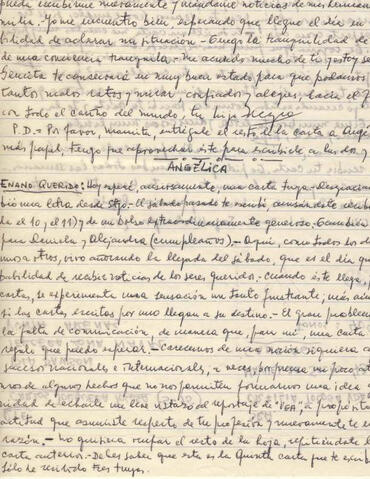 puede escribirme nuevamente y mándame noticias de mis hermanas
milia. Yo me encuentro bien esperando que llegue el día
bilidad de aclarar mi situación.- Tengo la tranquilidad de
de una conciencia tranquila.- Me acuerdo mucho de ti
te conservará en muy buen estado para que podamos
tantos malos ratos y mirar, confiados y alegres, hacia el
con todo el cariño del mundo, tu hijo Negro
P.D.= Por favor, mamita, entrégale el resto de la carta a Angé
más papel, tengo que aprovechar éste para escribirle a las dos y
ANGÉLICA
ENANO QUERIDO: Hoy esperé, ansiosamente, una carta tuya.- Desgraciad
bió una letra desde Stgo. El sábado pasado te escribí
do el 10, el 11) y de un sobre extraordinariamente generoso.- También
para Daniela y Alejandra (cumpleaños).- Aquí, como todos los de
nosotros, vivo añorando la llegada del sábado, que es el día que
bilidad de recibir noticias de los seres queridos.- Cuando éste llega,
cartas, se experimenta una sensación un tanto frustrante, más aún
si las cartas escritas por uno llegan a su destino.- El gran problema
la falta de comunicación, de manera que, para mí, una carta
regalo que puedo esperar.- Carecemos de una noción siquiera
sucesos nacionales e internacionales, a veces,
mos de algunos hechos que no nos permiten formarnos una idea
nidad de echarle un leve vistazo al reportaje de "VEA", a propósito
actitud que asumiste respecto de tu profesión y nuevamente te
razón.- No quisiera ocupar el resto de la hoja, repitiéndote
carta anterior.- Debes saber que esta es la Quinta carta que te
Sólo he recibido tres tuyas.